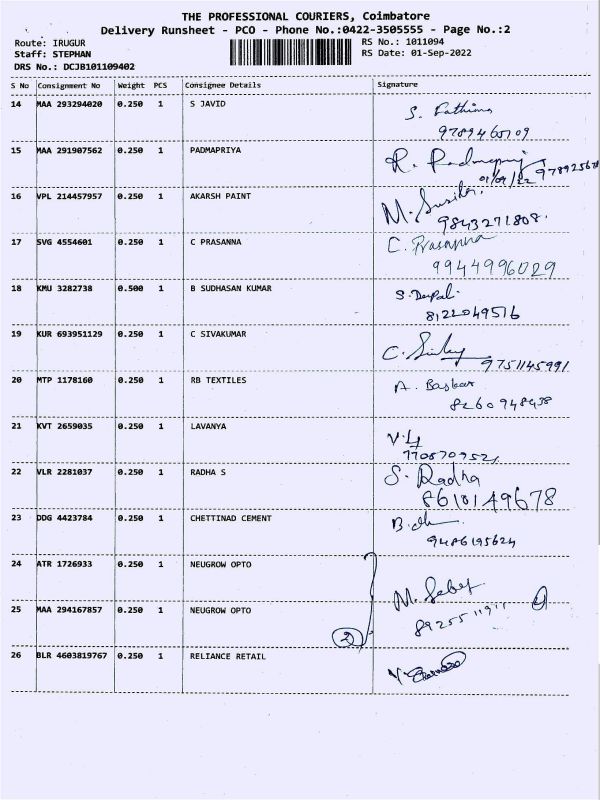 THE PROFESSIONAL COURIERS, Coimbatore
Delivery Runsheet - PCO - Phone No.:0422-3505555 - Page No.:2
Route: IRUGUR
RS No.: 1011094
Staff: STEPHAN
RS Date: 01-Sep-2022
DRS No.: DCJB101109402
S No Consignment No Weight PCS Consignee Details Signature
14 MAA 293294020 0.250 1 S JAVID S. Fathima
9789465709
15 MAA 291907562 0.250 1 PADMAPRIYA R. Padmapriya
01/09/22
16 VPL 214457957 0.250 1 AKARSH PAINT M.
9843271808.
17 SVG 4554601 0.250 1 C PRASANNA C. Prasanna
9944996029
18 KMU 3282738 0.500 1 B SUDHASAN KUMAR S.
8122049516
19 KUR 693951129 0.250 1 C SIVAKUMAR C.
9751145991
20 MTP 1178160 0.250 1 RB TEXTILES A. Baskar
8260948438
21 KVT 2659035 0.250 1 LAVANYA
22 VLR 2281037 0.250 1 RADHA S S. Radha
8610149678
23 DDG 4423784 0.250 1 CHETTINAD CEMENT B.
9486195624
24 ATR 1726933 0.250 1 NEUGROW OPTO M.
25 MAA 294167857 0.250 1 NEUGROW OPTO
2
26 BLR 4603819767 0.250 1 RELIANCE RETAIL